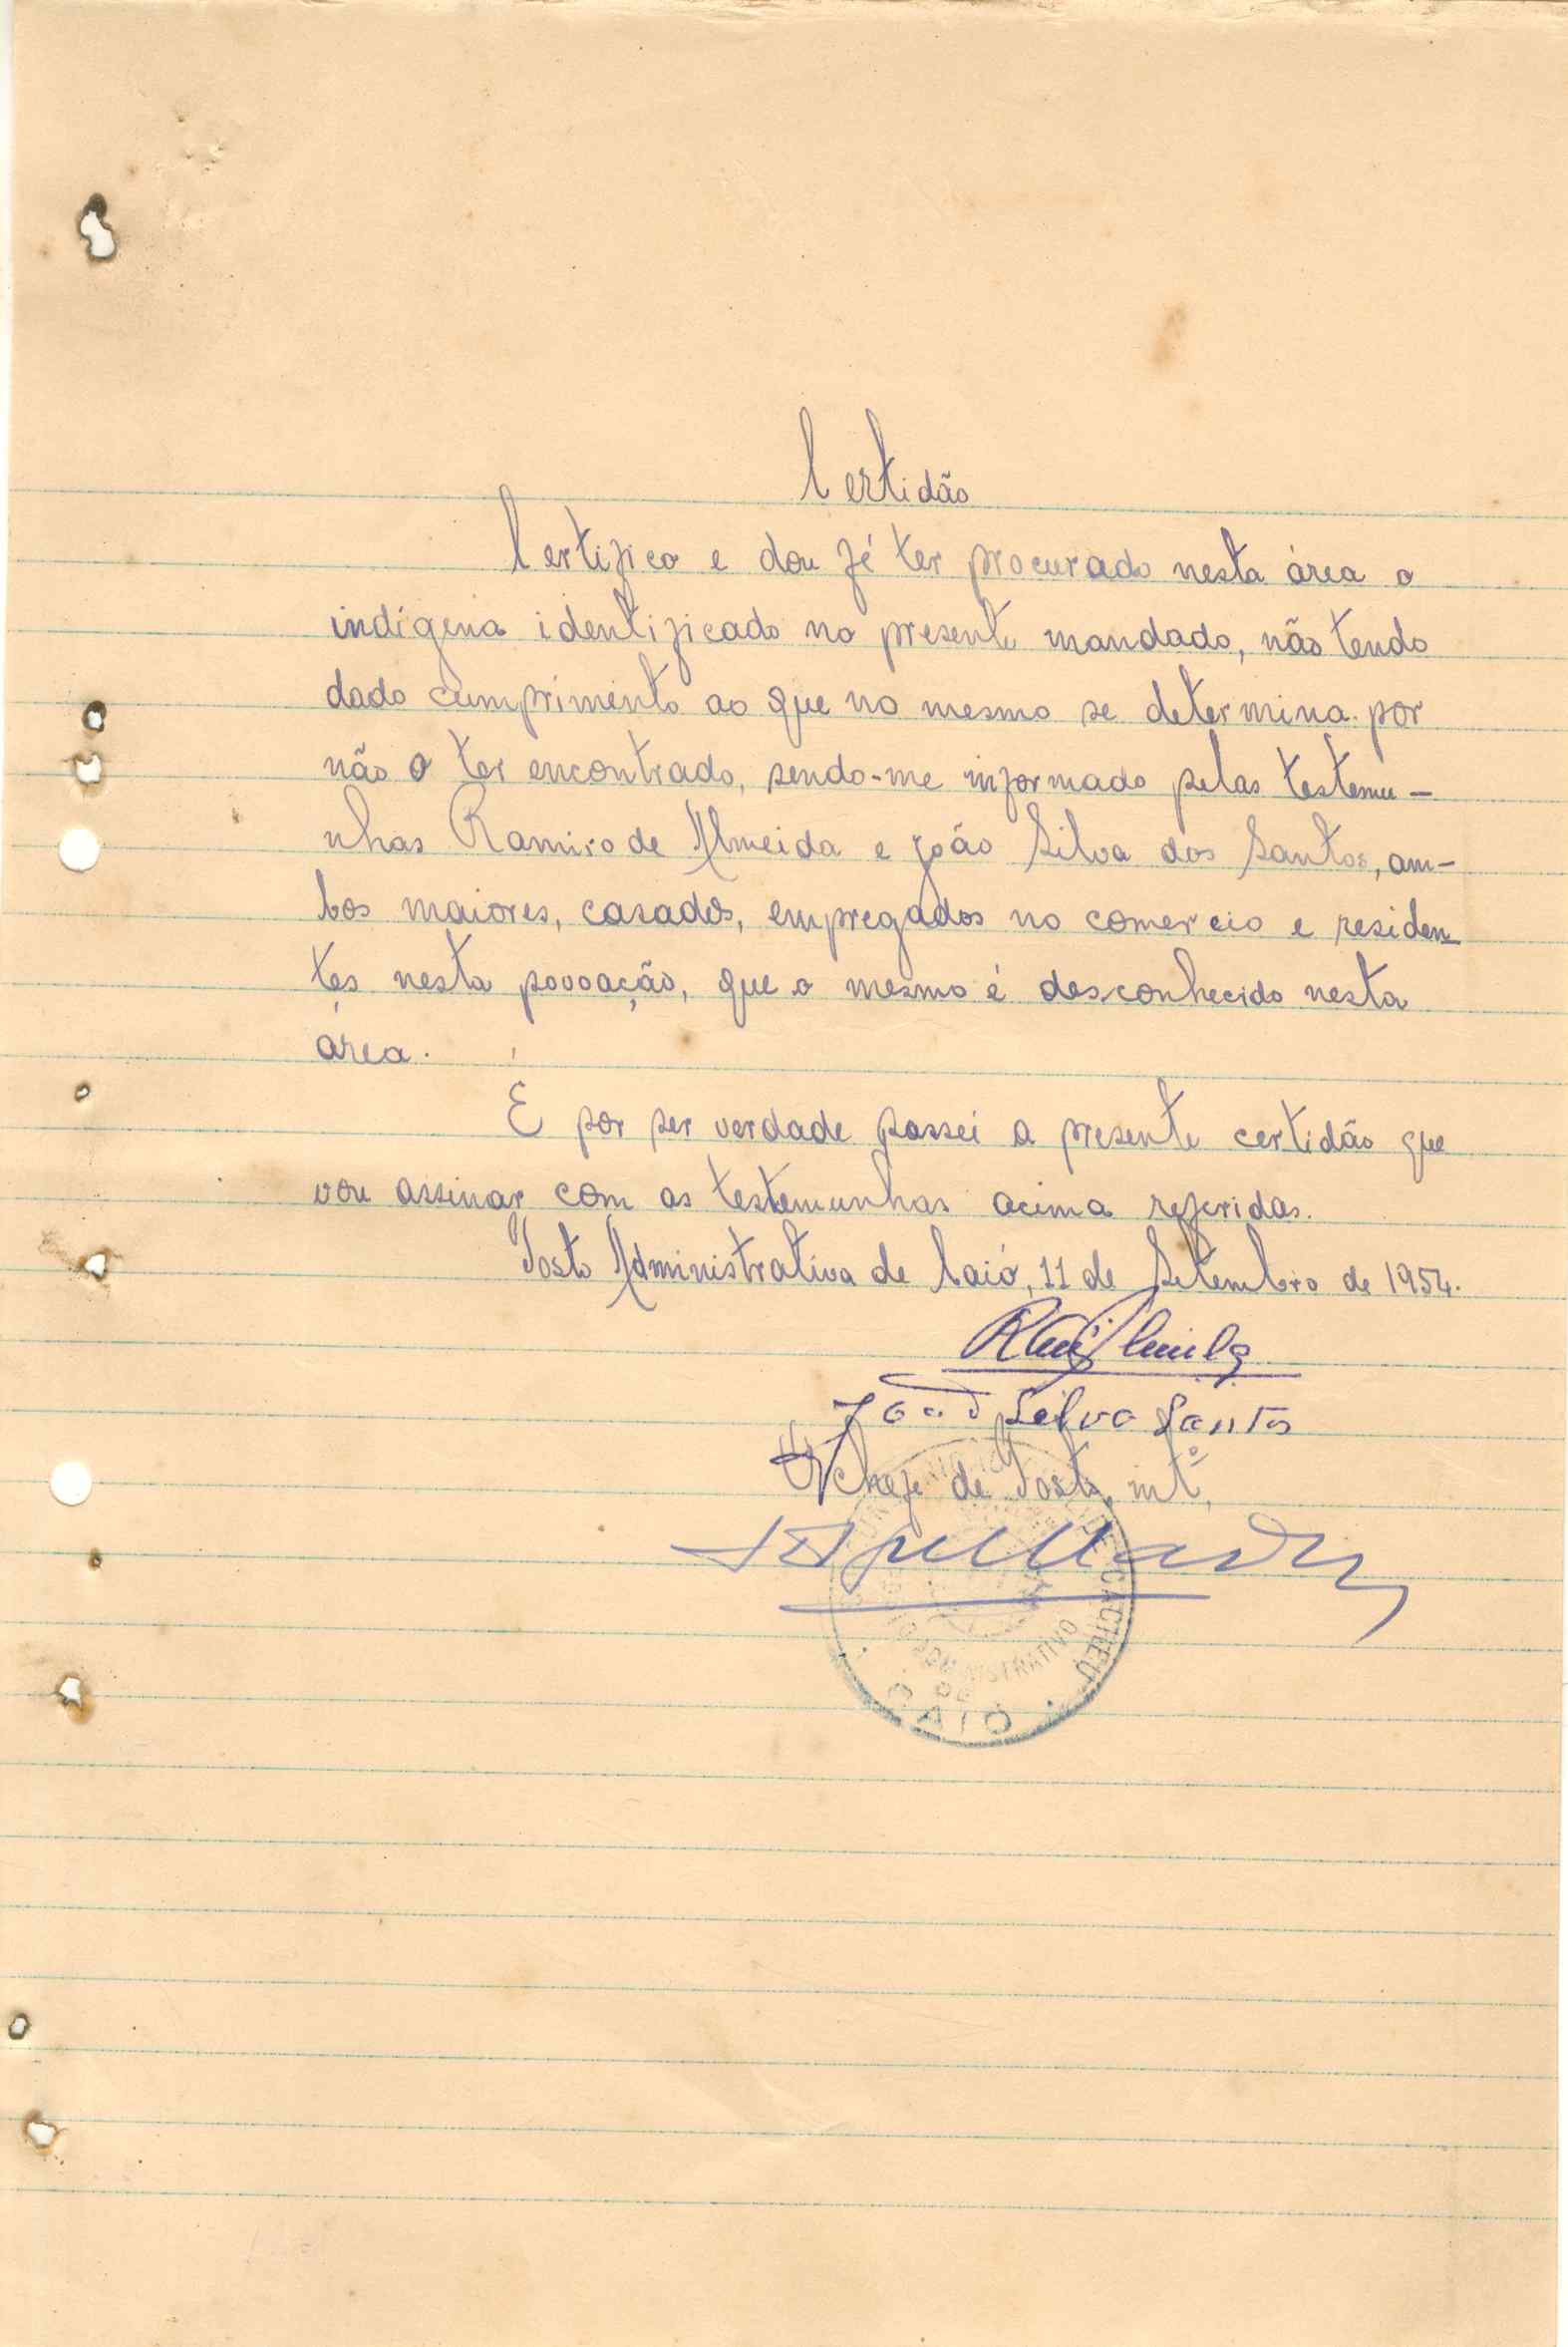 Certidão
Certifico e dou fé ter procurado nesta área o
indígena identificado no presente mandado, não tendo
dado cumprimento ao que no mesmo se determina por
não o ter encontrado, sendo-me informado pelas testemu-
nhas Ramiro de Almeida e João Silva dos Santos, am-
bos maiores, casados, empregados no comercio e residen-
tes nesta povoação, que o mesmo é desconhecido nesta
área.
E por ser verdade passei a presente certidão que
vou assinar com as testemunhas acima referidas.
Posto Administrativo de Caió, 11 de Setembro de 1954.
João Silva Santos
O Chefe de Posto, intº,
CACHEU
POSTO ADMINISTRATIVO
DE
CAIÓ